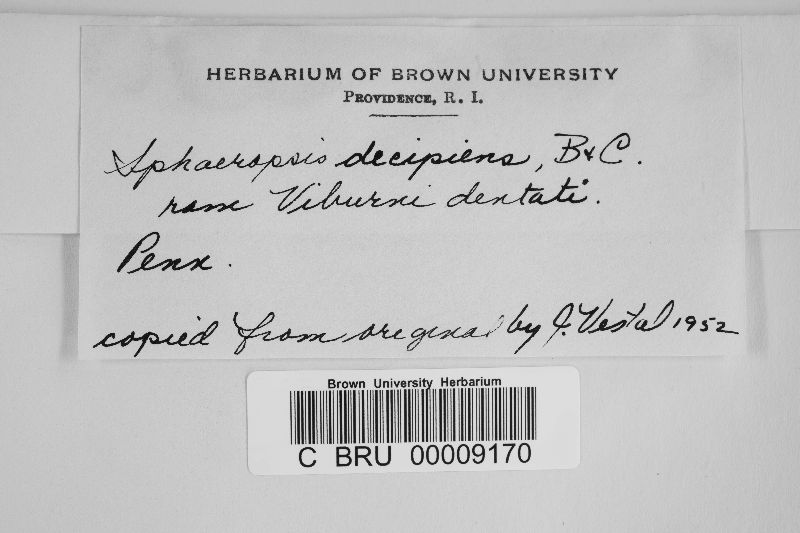 HERBARIUM OF BROWN UNIVERSITY
PROVIDENCE, R. I.
Sphaeropsis decipiens, B & C.
ram Viburni dentati.
Penn.
copied from original by J. Vestal 1952
Brown University Herbarium
C BRU 00009170